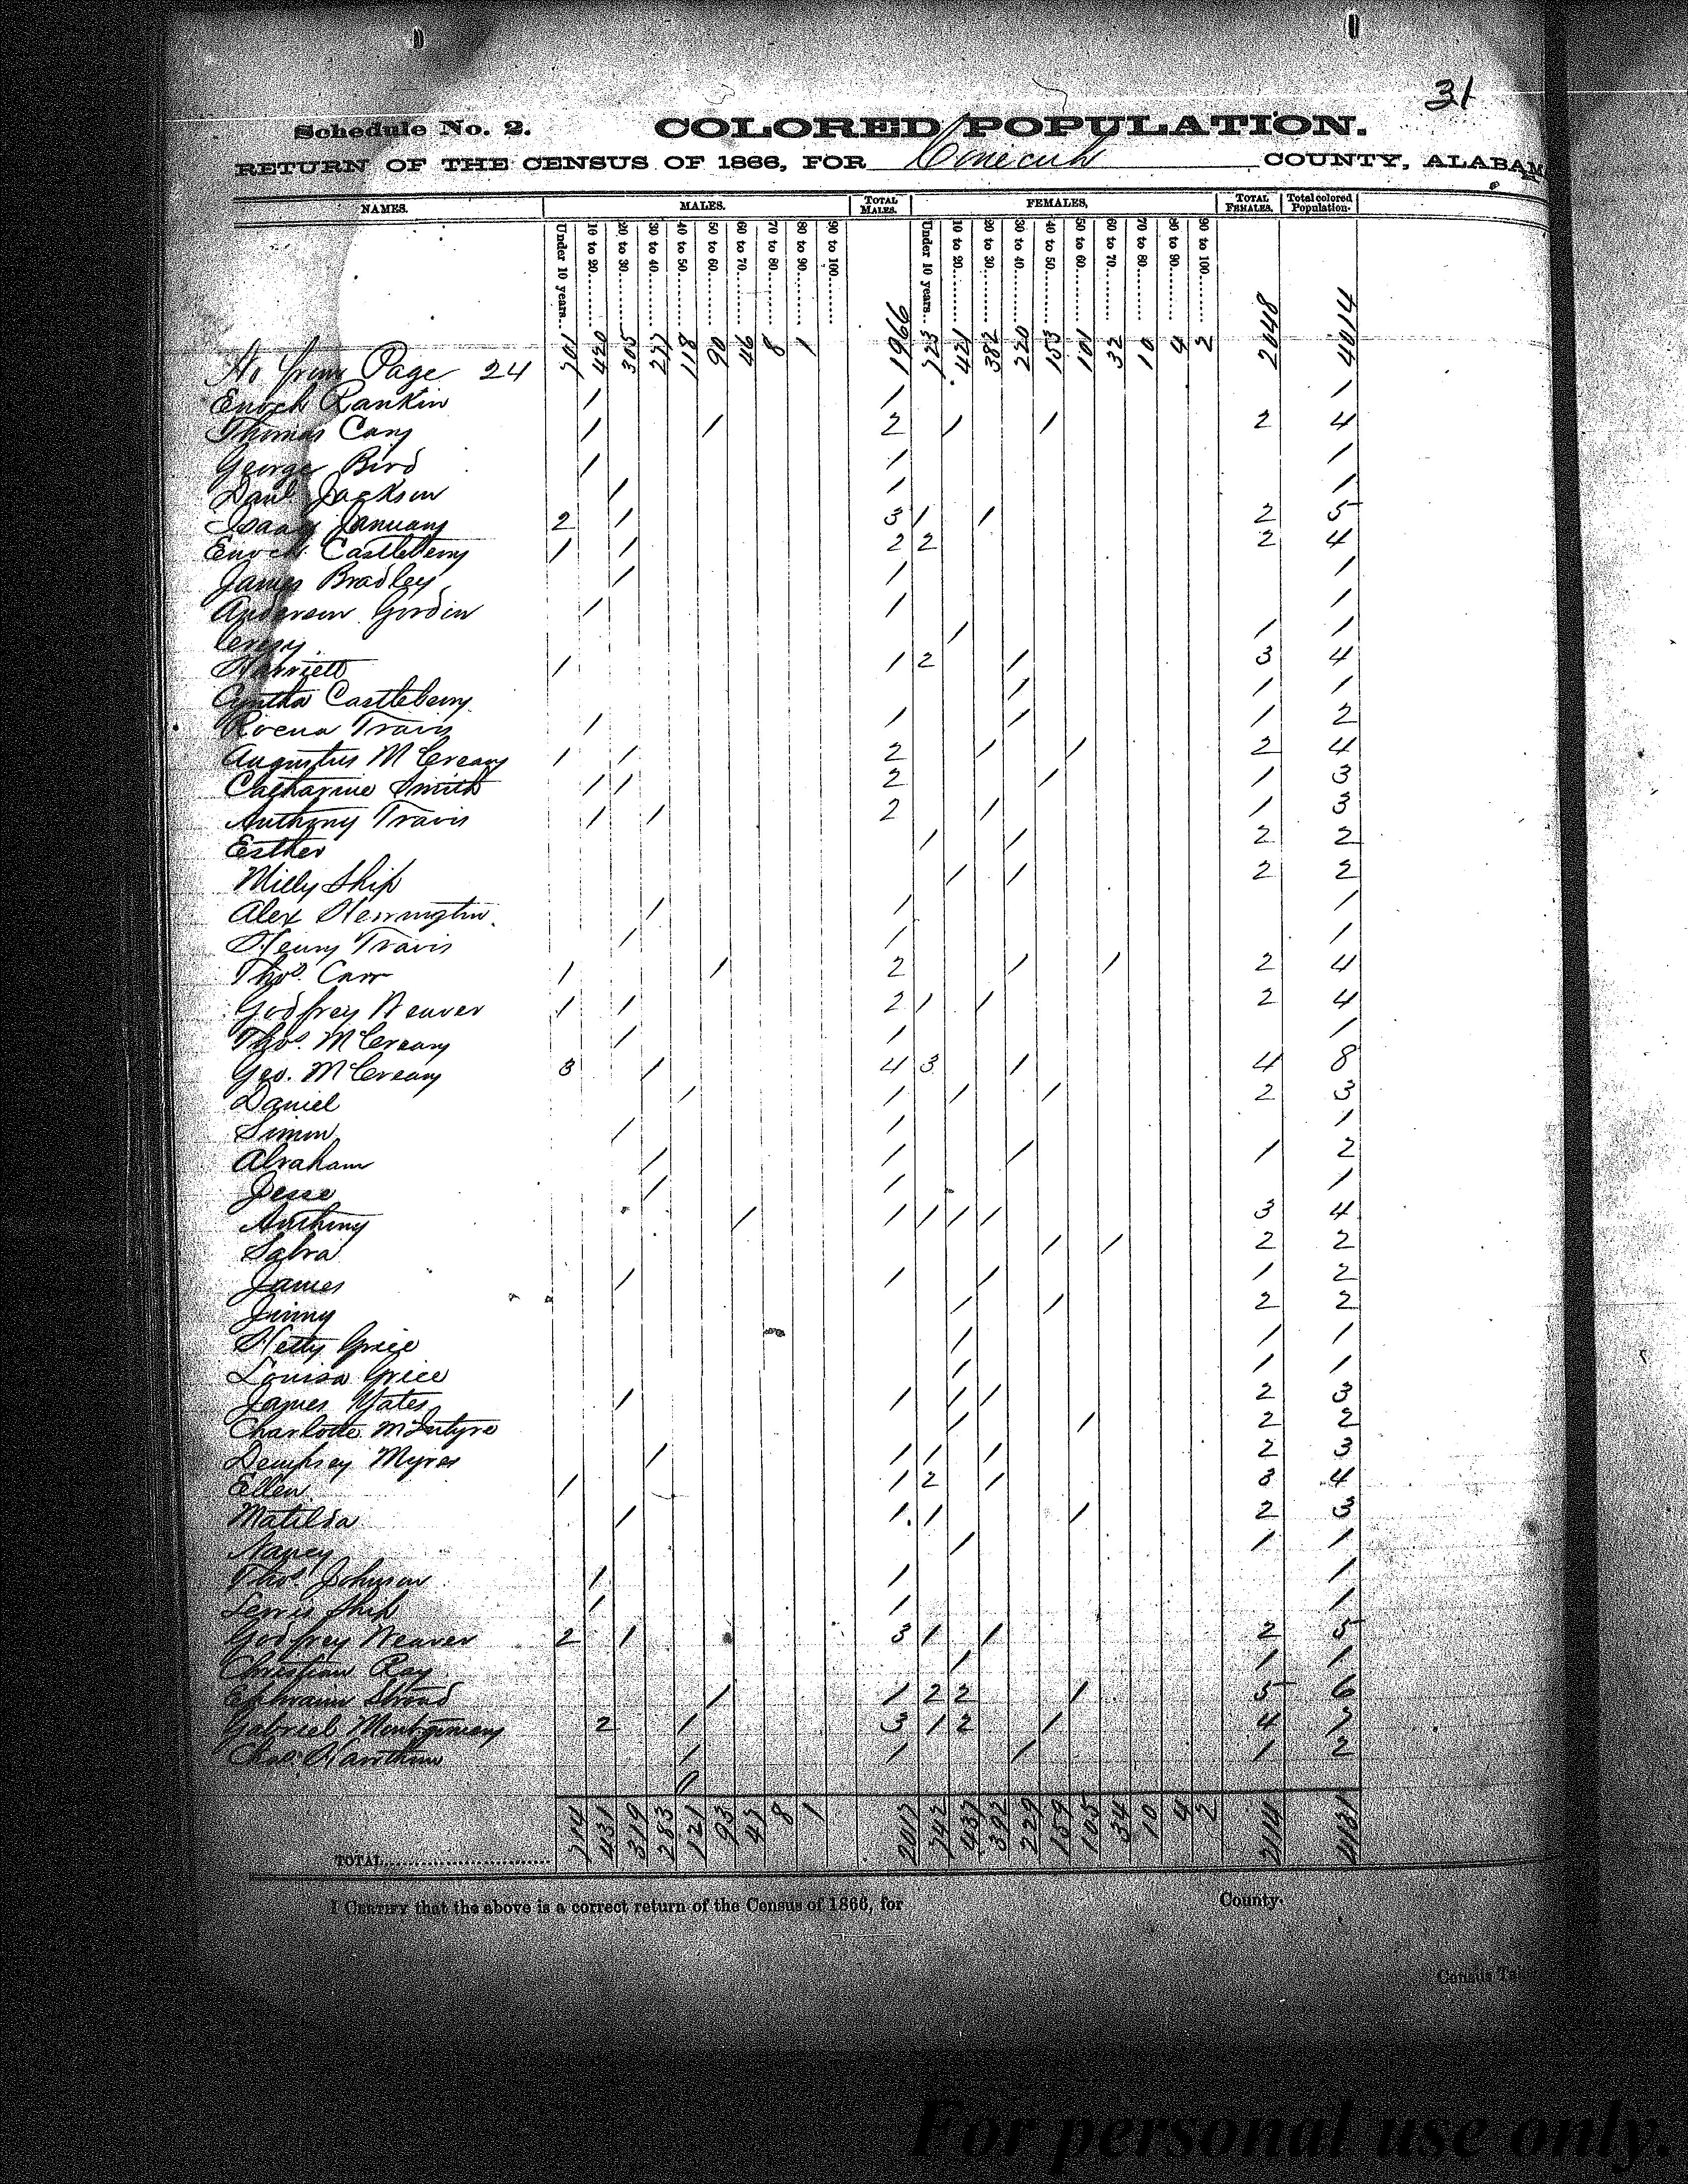 31
Schedule No. 2. COLORED POPULATION.
RETURN OF THE CENSUS OF 1866, FOR Conecuh COUNTY, ALABAM
NAMES. MALES. TOTAL MALES. FEMALES, TOTAL FEMALES. Total colored Population.
Under 10 years.. 10 to 20........ 20 to 30........ 30 to 40........ 40 to 50........ 50 to 60........ 60 to 70........ 70 to 80........ 80 to 90........ 90 to 100........ Under 10 years.. 10 to 20........ 20 to 30........ 30 to 40........ 40 to 50........ 50 to 60........ 60 to 70........ 70 to 80........ 80 to 90........ 90 to 100........
Page 24 701 420 305 277 118 90 46 8 1 1966 723 421 382 220 153 101 32 10 4 2 2048 4014
Enoch Rankin 1 1 1
Thomas Cary 1 1 2 1 1 2 4
George Bird 1 1 1
Danl Jackson 1 1 1
Isaac January 2 1 3 1 1 2 5
Enoch Castleberry 1 1 2 2 2 4
James Bradley 1 1 1
Anderson Gordin 1 1 1
1 1 1
Harriett 1 1 2 1 3 4
Cyntha Castleberry 1 1 1
Rocna Travis 1 1 1 1 2
Augustus McCreary 1 1 2 1 1 2 4
Catharine Smith 1 1 2 1 1 3
Anthony Travis 1 1 2 1 1 3
Esther 1 1 2 2
Milly Ship 1 1 2 2
Alex Herrington 1 1 1
Henry Travis 1 1 1
Thos. Carr 1 1 2 1 1 2 4
Godfrey Weaver 1 1 2 1 1 2 4
Thos. McCreary 1 1 1
Geo. McCreary 3 1 4 3 1 4 8
Daniel 1 1 1 1 2 3
Simon 1 1 1
Abraham 1 1 1 1 2
Jesse 1 1 1
Anthony 1 1 1 1 1 3 4
Sabra 1 1 2 2
James 1 1 1 1 2
Jinny 1 1 2 2
Hetty Grice 1 1 1
Louisa Grice 1 1 1
James Yates 1 1 1 1 2 3
Charlotte McIntyre 1 1 2 2
Dempsey Myres 1 1 1 1 2 3
Ellen 1 1 2 1 3 4
Matilda 1 1 1 1 2 3
Nancy 1 1 1
Thos. Johnson 1 1 1
Lewis Ship 1 1 1
Godfrey Weaver 2 1 3 1 1 2 5
Christian Ray 1 1 1
Ephraim Stroud 1 1 2 2 1 5 6
Gabriel Montgomery 2 1 3 1 2 1 4 7
Chas. Hawthorn 1 1 1 1 2
TOTAL........................... 714 431 319 283 121 93 47 8 1 2017 742 437 392 229 159 105 34 10 4 2 2114 4131
I CERTIFY that the above is a correct return of the Census of 1866, for County.
Census Tak
For personal use only.